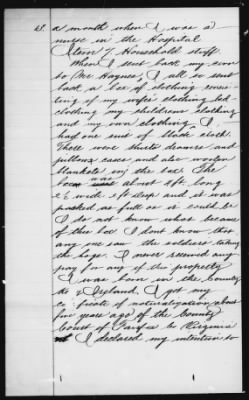 a month when I was a
nurse in the Hospital
Item 7 Household stuff.
When I sent back my
to Mr Haynes, I all so sent
back a box of clothing
of my wifes clothing bed
clothing my childrens clothing
and my own clothing. I
had one end of black cloth.
There were shirts drawers and
pillow cases and also woolen
blankets in the box. The
box was about 4ft long
2½ wide & ft deep and it was
packed as full as it could be
I do not know what became
of this box I dont know that
any one saw the soldiers taking
the hogs. I never received any
pay for any of this property
I was born in the County
Ireland. I got my
of naturalization about
five years ago of the County
Court of Fairfax Co Virginia
I declared my intention to